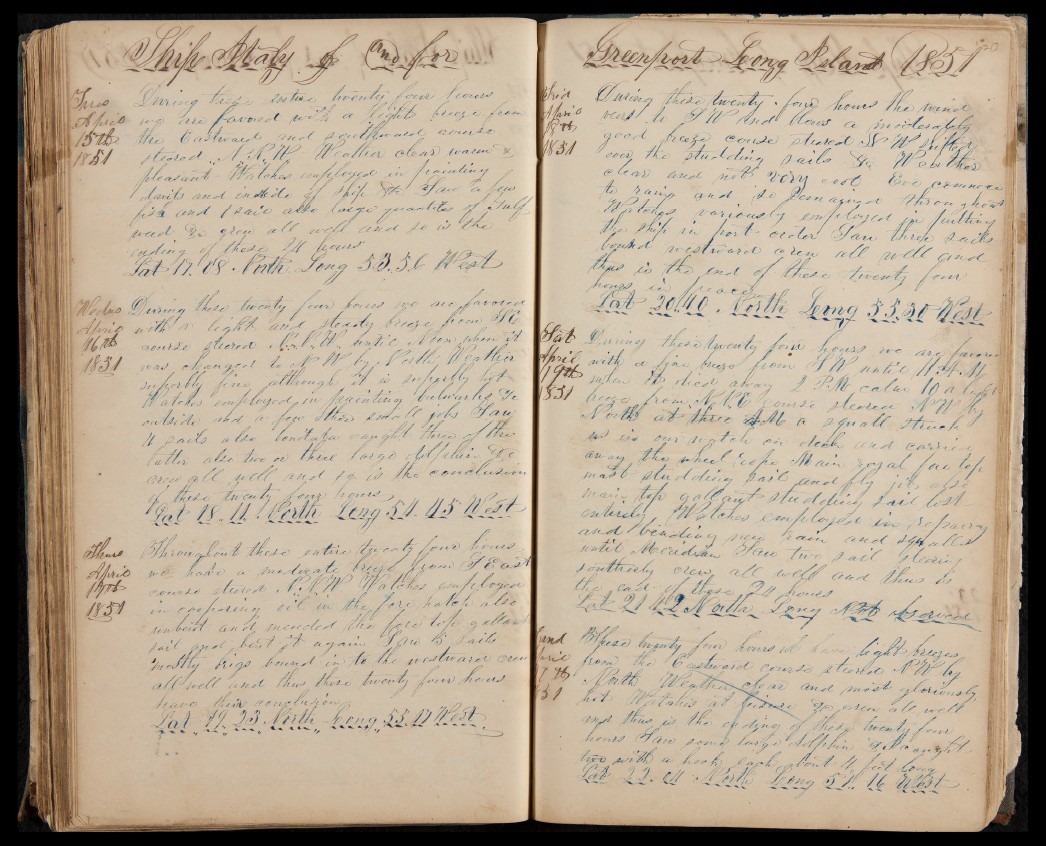 Ship Italy of and for
Tues
April
15th
1851
During these entire twenty four hours
we are favored with a light breeze from
the Eastward and southward course
steered N.N.W. Weather clear warm &
pleasant - Watches employed in painting
davits and inside of ship &c Saw a few
fish and I saw also large quantities of Gulf
weed &c crew all well and so is the
ending of these 24 hours
Lat 17.08 North Long 53.56 West
Wednes
April
16th
1851
During these twenty four hours we are favored
with a light and steady breeze from SE
course steered N.N.W. until Noon when it
was changed to N W by North Weather
superbly fine although it is superbly hot
Watches employed in painting bulwarks &c
outside and a few other small jobs Saw
4 sails also caught three of the
latter also two or three large dolphin &c
crew all well and so is the conclusion
of these twenty four hours
Lat 18.11 North Long 54.45 West
Thurs
April
17th
1851
Throughout these entire twenty four hours
we have a moderate breeze from S East
course steered N.N.W Watches employed
in coopering oil in the fore hatch also
unbent and mended the fore top gallant
sail and bent it again Saw 5 sails
mostly brigs bound in to the westward crew
all well and thus these twenty four hours
have their conclusion
Lat 19.23 North Long 55.17 West
Greenport Long Island 1851
Frid
April
18th
1851
During these twenty four hours the wind
veers to S W and blows a moderately
good breeze course steered N W
over the studding sails &c Weather
clear and not very cool Eve commence
to rain and so throughout
Watches variously employed in putting
the ship in port order Saw three sails
bound westward crew all well and
thus is the end of these twenty four
hours in peace
Lat 20.40 North Long 55.50 West
Sat
April
19th
1851
During these twenty four hours we are favored
with a fine breeze from S W until 11 A M
when it died away 2 P.M calm 10 a light
breeze from N.E course steered N W by
North at three A M a squall struck
us in our watch on deck and carried
away the wheel rope Main royal fore top
mast studding sail and fly jib also
main top gallant studding sail lost
entirely Watches employed in repairing
and bending new rain and squalls
until Meridian Saw two sail steering
southerly crew all well and thus is
the end of these 24 hours
Lat 21.42 North Long Not observed
Sund
April
1851
These twenty four hours we have light breezes
from the Eastward course steered N W by
North Weather clear and most gloriously
hot Watches at leisure &c crew all well
and thus is the ending of these twenty four
hours Saw some large dolphin & I caught
two with a hook each about 4 feet long
Lat 22.04 North Long 57.16 West